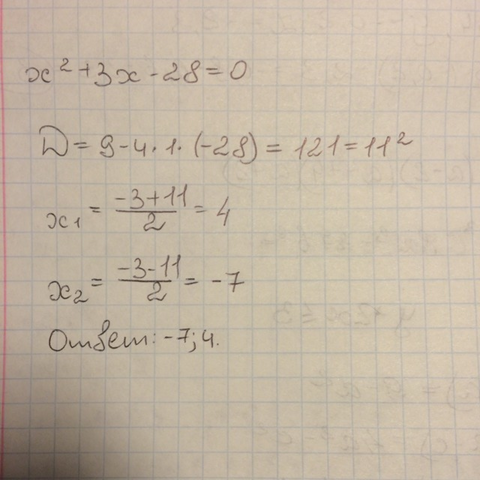 x² + 3x - 28 = 0
D = 9 - 4 · 1 · (-28) = 121 = 11²
x₁ = (-3+11)/2 = 4
x₂ = (-3-11)/2 = -7
Ответ: -7; 4.